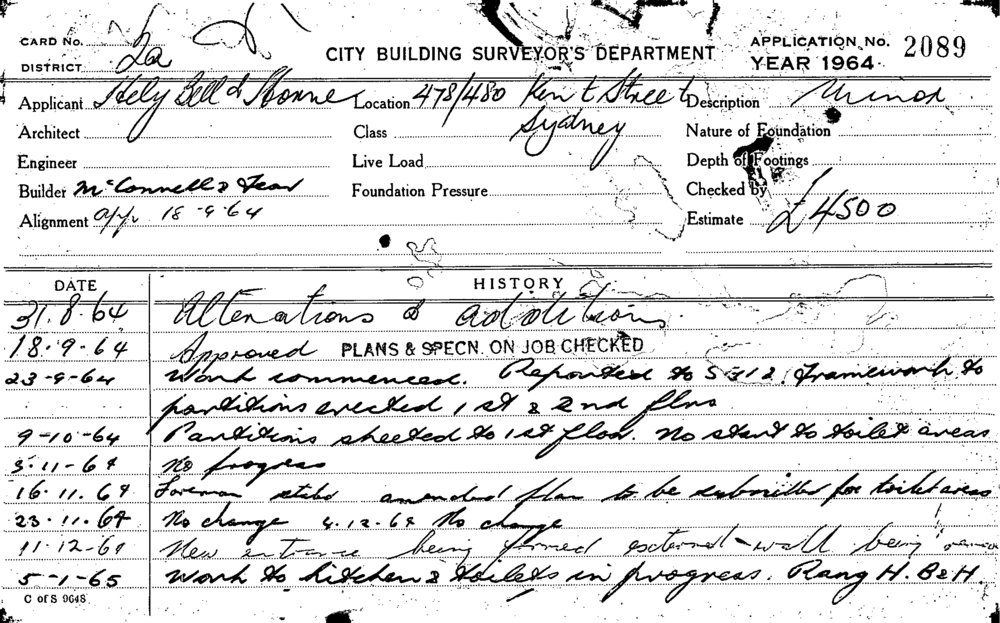 CARD No.
DISTRICT 2a
CITY BUILDING SURVEYOR'S DEPARTMENT
APPLICATION No. 2089
YEAR 1964
Applicant Hely Bell & Horne Location 478/480 Kent Street Description Minor
Architect Class Sydney Nature of Foundation
Engineer Live Load Depth of Footings
Builder McConnell & Foundation Pressure Checked by
Alignment app. 18-9-64 Estimate £4500
DATE HISTORY
31.8.64 Alterations & additions.
18.9.64 Approved PLANS & SPECN. ON JOB CHECKED
23-9-64 Work commenced. Reported to S 312. Framework to
partitions erected 1st & 2nd flrs
9-10-64 Partitions sheeted to 1st floor. No start to toilet areas
3.11-64 No progress
16.11.64 Foreman amended plan to be submitted for toilet areas
23.11.64 No change 4.12.64 No change
11.12-64 New entrance being formed external wall being
5-1-65 Work to kitchen & toilets in progress. Rang H. B & H
C of S 9648